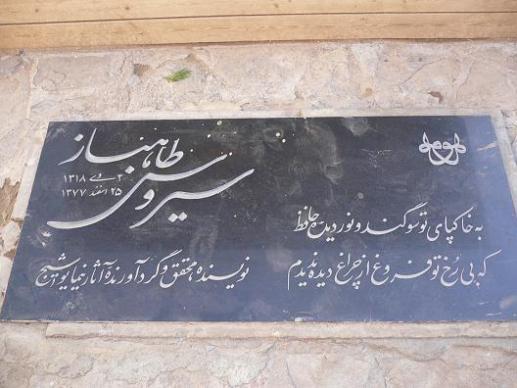 سیروس طاهباز
دی ۱۳۱۸
۲۵ اسفند ۱۳۷۷
به خاکپای تو سوگند و نور دیده حافظ
که بی رُخ تو فروغ از چراغ دیده ندیدم
نویسنده، محقق و گردآورندهٔ آثار نیما یوشیج